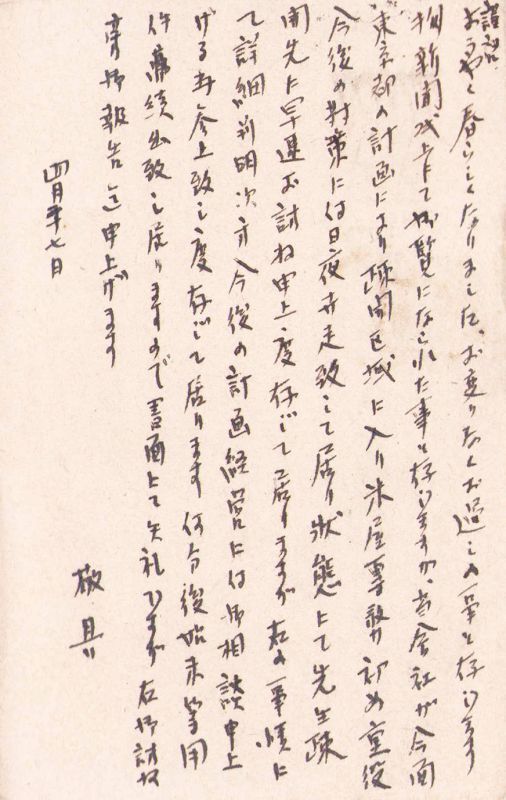 謹啓
ようやく春らしくなりました、お変りなくお過しの事と存じます
拟新聞或上にて御覧になられた事と存じますが、当会社が今回
東京都の計画により疎開区域に入り米屋専務初め重役
今後の対策には日夜奔走致して居り状態にて先生疎
開先に早速お訪ね申上度存じて居りますが右の事情に
て詳細判明次方今後の計画経営には御相談申上
げる共参上致し度存じて居ります 何分後始末等用
件続出致し居りますので書面上にて失礼ですが右御訪ね
旁御報告迄申上げます
四月七日
敬具